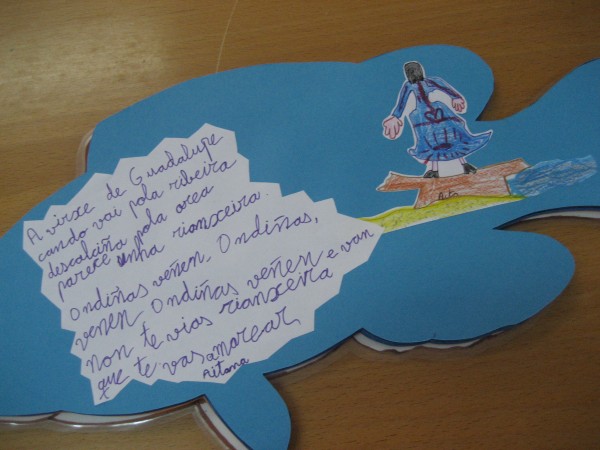 A virxe de Guadalupe
cando vai pola ribeira
descalciña pola area
parece unha rianxeira.
Ondiñas veñen, Ondiñas,
veñen, Ondiñas veñen e van
non te vias rianxeira
que te vas a marear,
Aitana